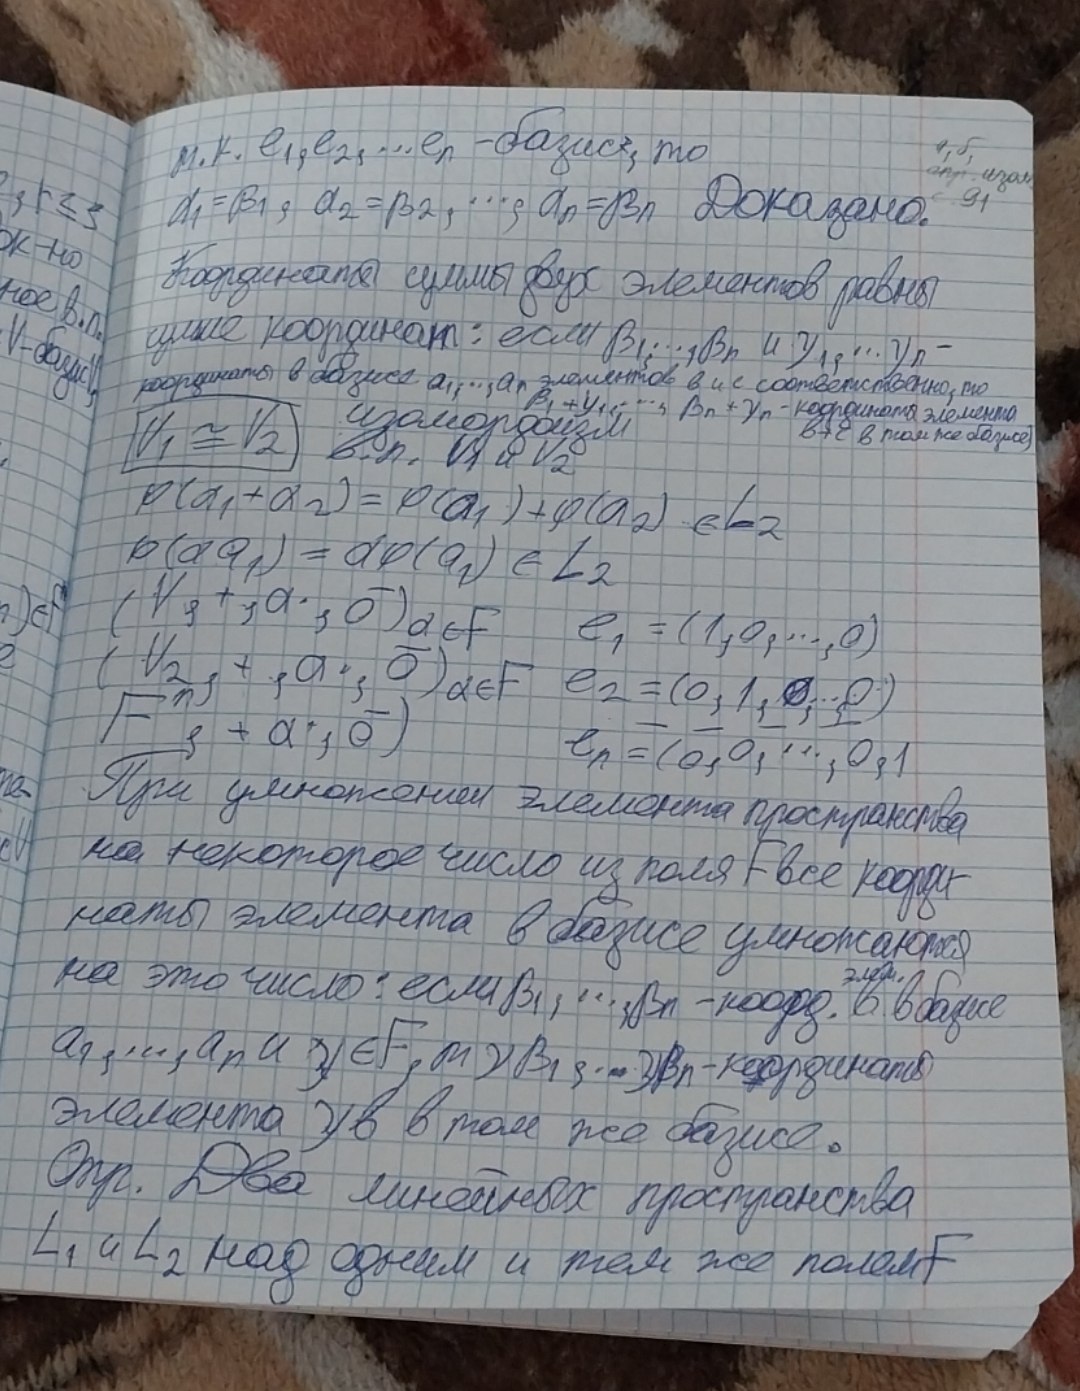 т.к. e₁, e₂, ... eₙ - базис, то
α₁=β₁, α₂=β₂, ..., αₙ=βₙ Доказано.
91
Координаты суммы двух элементов равны
сумме координат: если β₁,...,βₙ и γ₁,...γₙ -
координаты в базисе a₁,...,aₙ элементов в и с соответственно, то
β₁+γ₁,..., βₙ+γₙ - координаты элемента
в+с в том же базисе)
V₁ ≅ V₂ изоморфизм
в.п. V₁ и V₂
φ(a₁+a₂)=φ(a₁)+φ(a₂) ∈L₂
φ(αa₁)=αφ(a₁) ∈ L₂
(V, +, α·, ō)α∈F e₁=(1,0,...,0)
(V₂, +, α·, ō)α∈F e₂=(0,1,0,...0)
Fⁿ, + α·, ō) eₙ=(0,0,...,0,1
При умножении элемента пространства
на некоторое число из поля F все коорди-
наты элемента в базисе умножаются
на это число: если β₁,...,βₙ -коорд. элем. в в базисе
a₁,...,aₙ и γ∈F, т γβ₁,...γβₙ -координаты
элемента γв в том же базисе.
Опр. Два линейных пространства
L₁ и L₂ над одним и тем же полем F